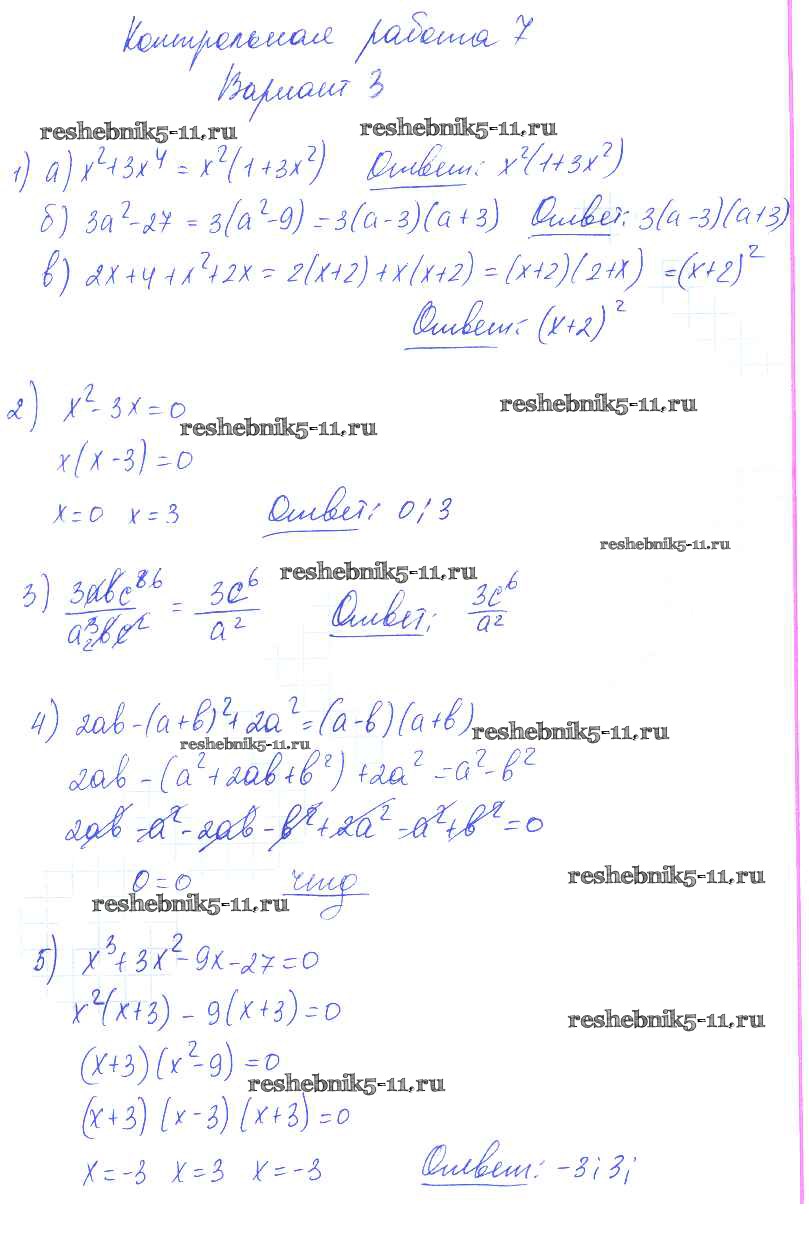 Контрольная работа 7
Вариант 3
reshebnik5-11.ru reshebnik5-11.ru
1) а) x²+3x⁴ = x²(1+3x²) Ответ: x²(1+3x²)
б) 3a²-27 = 3(a²-9) = 3(a-3)(a+3) Ответ: 3(a-3)(a+3)
в) 2x+4+x²+2x = 2(x+2)+x(x+2) = (x+2)(2+x) = (x+2)²
Ответ: (x+2)²
2) x²-3x=0
reshebnik5-11.ru reshebnik5-11.ru
x(x-3)=0
x=0 x=3 Ответ: 0; 3
reshebnik5-11.ru
reshebnik5-11.ru
3) 3abc⁸ ⁶ / a³ ₂bc² = 3c⁶ / a² Ответ: 3c⁶ / a²
4) 2ab-(a+b)²+2a²=(a-b)(a+b)
reshebnik5-11.ru reshebnik5-11.ru
2ab-(a²+2ab+b²)+2a²=a²-b²
2ab-a²-2ab-b²+2a²-a²+b²=0
0=0 чтд
reshebnik5-11.ru reshebnik5-11.ru
5) x³+3x²-9x-27=0
x²(x+3)-9(x+3)=0
reshebnik5-11.ru
(x+3)(x²-9)=0
reshebnik5-11.ru
(x+3)(x-3)(x+3)=0
x=-3 x=3 x=-3 Ответ: -3; 3;